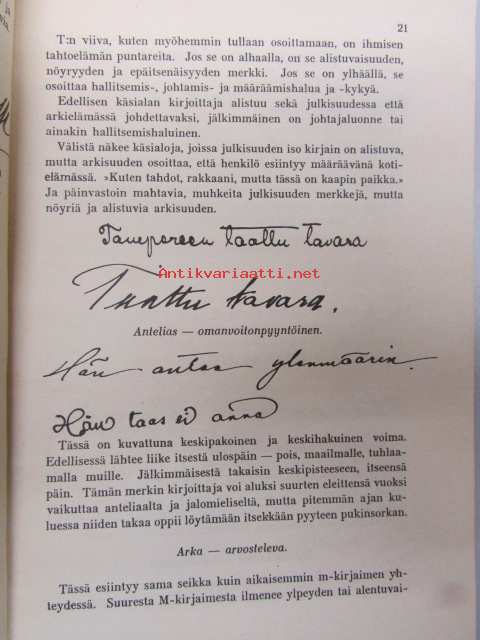 21
T:n viiva, kuten myöhemmin tullaan osoittamaan, on ihmisen
tahtoelämän puntareita. Jos se on alhaalla, on se alistuvaisuuden,
nöyryyden ja epäitsenäisyyden merkki. Jos se on ylhäällä, se
osoittaa hallitsemis-, johtamis- ja määräämishalua ja -kykyä.
Edellisen käsialan kirjoittaja alistuu sekä julkisuudessa että
arkielämässä johdettavaksi, jälkimmäinen on johtajaluonne tai
ainakin hallitsemishaluinen.
Välistä näkee käsialoja, joissa julkisuuden iso kirjain on alistuva,
mutta arkisuuden osoittaa, että henkilö esiintyy määräävänä koti-
elämässä. »Kuten tahdot, rakkaani, mutta tässä on kaapin paikka.»
Ja päinvastoin mahtavia, muhkeita julkisuuden merkkejä, mutta
nöyriä ja alistuvia arkisuuden.
Tampereen taattu tavara
Antikvariaatti.net
Taattu tavara.
Antelias — omanvoitonpyyntöinen.
Hän antaa ylenmäärin.
Hän taas ei anna
Tässä on kuvattuna keskipakoinen ja keskihakuinen voima.
Edellisessä lähtee liike itsestä ulospäin — pois, maailmalle, tuhlaa-
malla muille. Jälkimmäisestä takaisin keskipisteeseen, itseensä
päin. Tämän merkin kirjoittaja voi aluksi suurten eleittensä vuoksi
vaikuttaa anteliaalta ja jalomieliseltä, mutta pitemmän ajan ku-
luessa niiden takaa oppii löytämään itsekkään pyyteen pukinsorkan.
Arka — arvosteleva.
Tässä esiintyy sama seikka kuin aikaisemmin m-kirjaimen yh-
teydessä. Suuresta M-kirjaimesta ilmenee ylpeyden tai alentuvai-